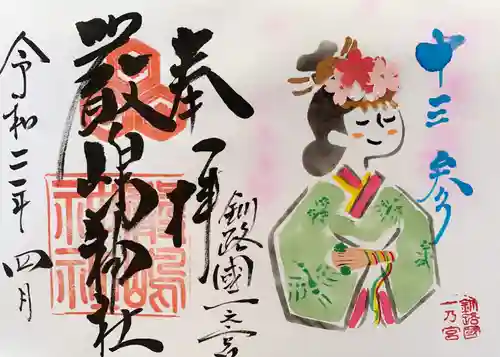 十三参り
奉拝
釧路國一之宮
厳島神社
令和三年四月
厳嶋神社
釧路國
一乃宮